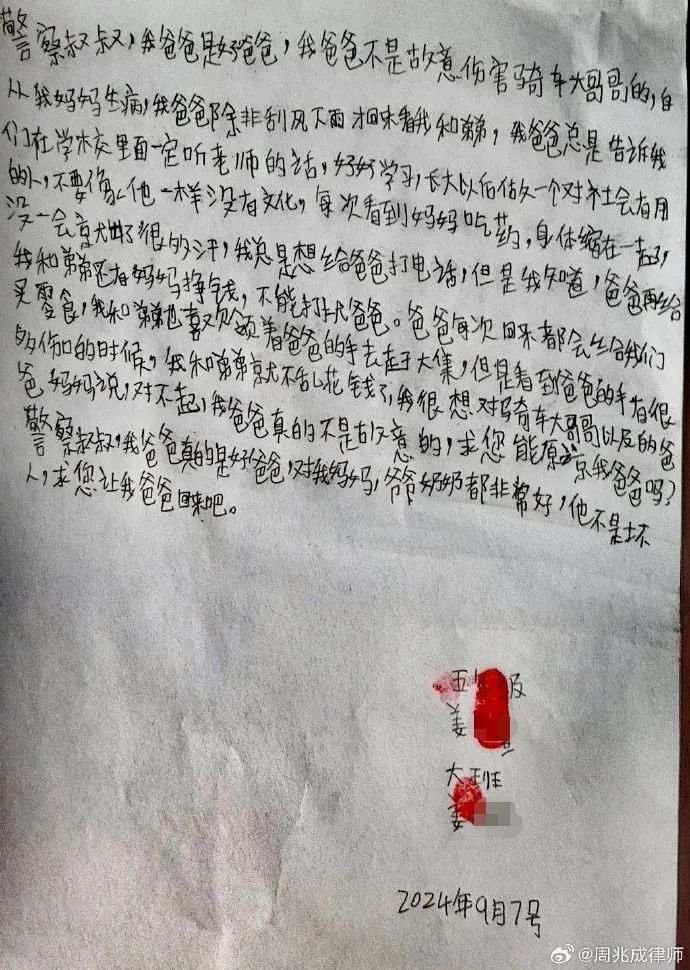 警察叔叔，我爸爸是好爸爸，我爸爸不是故意伤害骑车大哥哥的，自
从我妈妈生病，我爸爸除非刮风下雨才回来看我和弟弟，我爸爸总是告诉我
们在学校里面一定听老师的话，好好学习，长大以后做一个对社会有用
的人，不要像他一样没有文化，每次看到妈妈吃药，身体缩在一起，
没一会京就出了很多汗，我总是想给爸爸打电话，但是我知道，爸爸再给
我和弟弟还有妈妈挣钱，不能打扰爸爸。爸爸每次回来都会给我们
买零食，我和弟弟也喜欢领着爸爸的手去赶大集，但是看到爸爸的手有很
多伤口的时候，我和弟弟就不乱花钱了，我很想对骑车大哥哥以及的爸
爸妈妈说，对不起，我爸爸真的不是故意的，求您能原谅我爸爸吗？
警察叔叔，我爸爸真的是好爸爸，对我妈妈，爷爷奶奶都非常好，他不是坏
人，求您让我爸爸回来吧。
五年级
姜
大班
姜
2024年9月7号
@周兆成律师